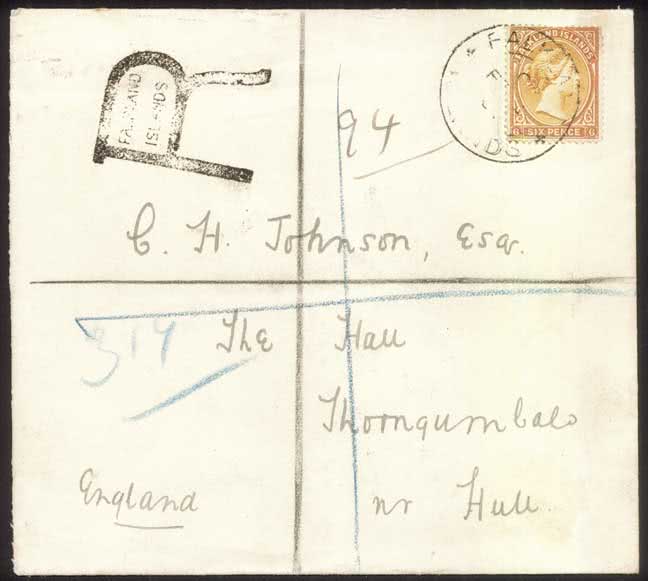 FALKLAND ISLANDS
FALKLAND ISLANDS
SIX PENCE
6 6
94
C. H. Johnson, Esqr.
314
The Hall
Thorngumbald
nr Hull.
England